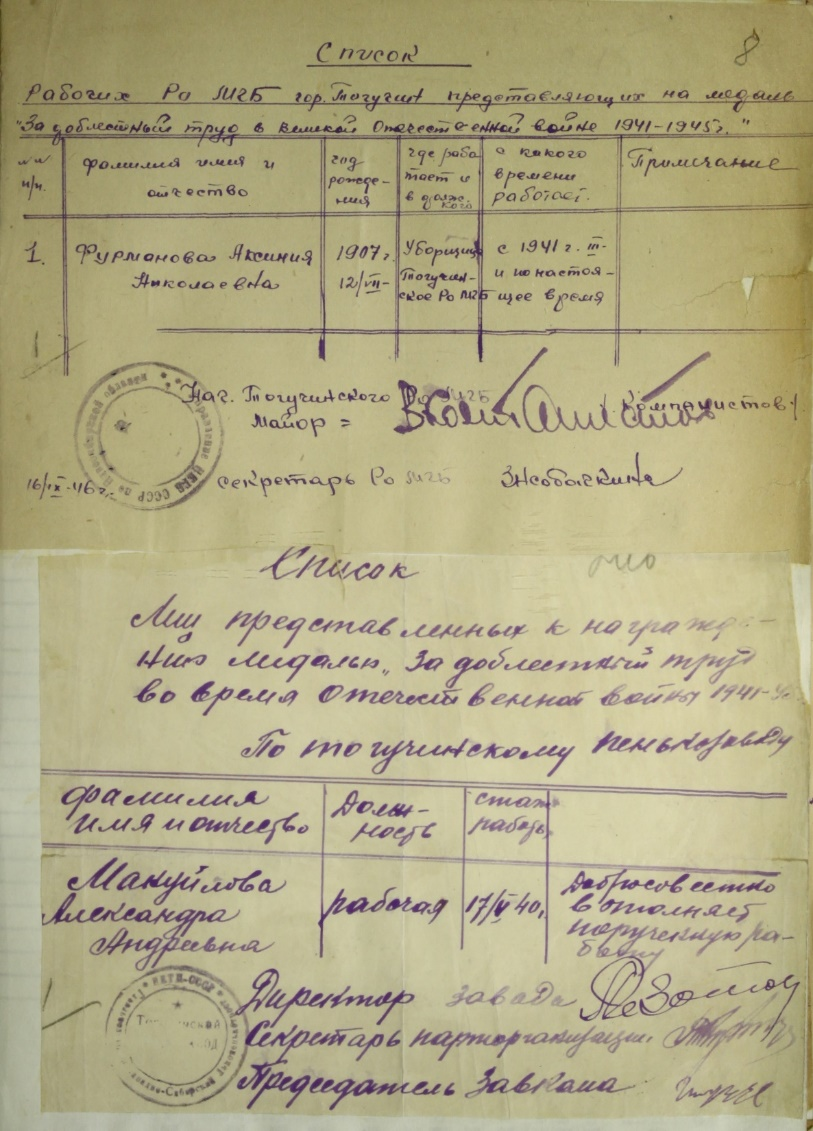 Список
8
Рабочих Ро МГБ гор. Тогучин представляющих на медаль
"За доблестный труд в великой Отечественной войне 1941-1945г."
№№ п/п. фамилия имя и отчество год рождения где работает и в долж. кого с какого времени работает. Примечание
1. Фурманова Аксиния 1907 г. Уборщица с 1941 г. III-
Николаевна 12/VII- Тогучин- и по настоя-
ское Ро МГБ щее время
1
Нач. Тогучинского Ро МГБ
майор = /Компанистов/
16/IX-46 г. секретарь Ро МГБ
Список
Лиц представленных к награжде-
нию медалью „За доблестный труд
во время Отечественной войны 1941-
По тогучинскому пенькозаводу
фамилия Долж- стаж
имя и отчество ность работы
Макуйлова рабочая 17/V 40г. Добросовестно
Александра выполняет
Андреевна порученную ра-
боту
Директор завода
Секретарь парторганизации
Председатель Завкома